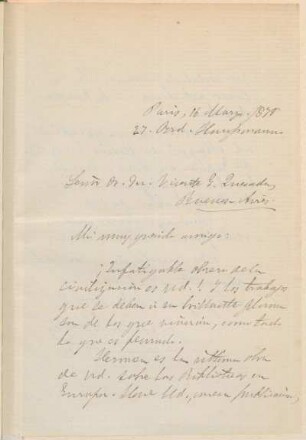 Paris, 16 Marzo 1878
27. Bvd. Haussmann
Señor Dr. Dn. Vicente G. Quesada,
Buenos Aires.
Mi muy querido amigo:
¡Infatigable obrero de la
civilización es Ud.! Y los trabajos
que se deben á su brillante pluma
son de los que vivirán, como todo
lo que es fecundo.
Hermosa es la última obra
de Ud. sobre las Bibliotecas en
Europa. Ud, con su publicación,